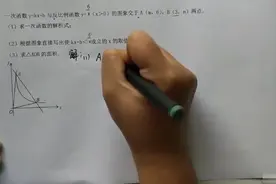 一次函数y=kx+b与反比例函数y=6/x(x>0)的图象交于A(m, 6), B(3, n)两点.
(1) 求一次函数的解析式;
(2) 根据图象直接写出使kx+b<6/x成立的x的取值
(3) 求△AOB的面积.
解(1) A